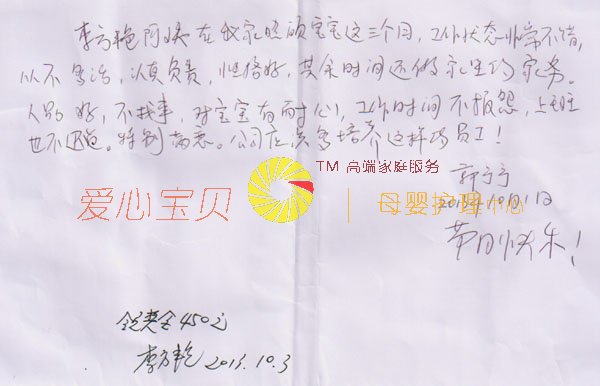 李方艳阿姨在我家照顾宝宝这三个月,工作状态非常不错,
从不多话,认真负责,性格好,其余时间还做家里的家务。
人口好,不找事,对宝宝有耐心,工作时间不报怨,上班
也不迟到。特别满意。公司应该多培养这样的员工!
TM 高端家庭服务
爱心宝贝 | 母婴护理中心
10月1日
节日快乐!
领奖金450元
李方艳 2013.10.3